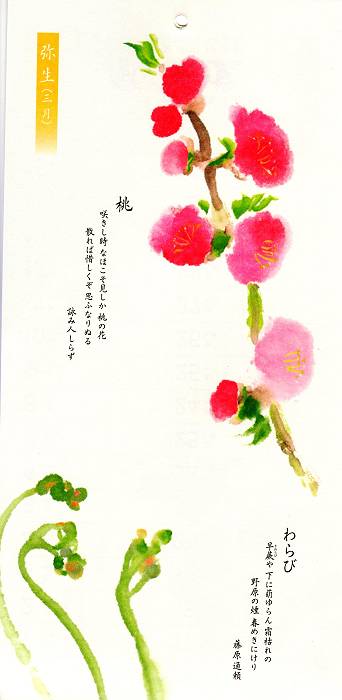 弥生(三月)
桃
咲きし時 なほこそ見しか 桃の花
散れば惜しくぞ 思ふなりぬる
詠み人しらず
わらび
早蕨や 下に萌ゆらん 霜枯れの
野原の煙 春めきにけり
藤原通頼